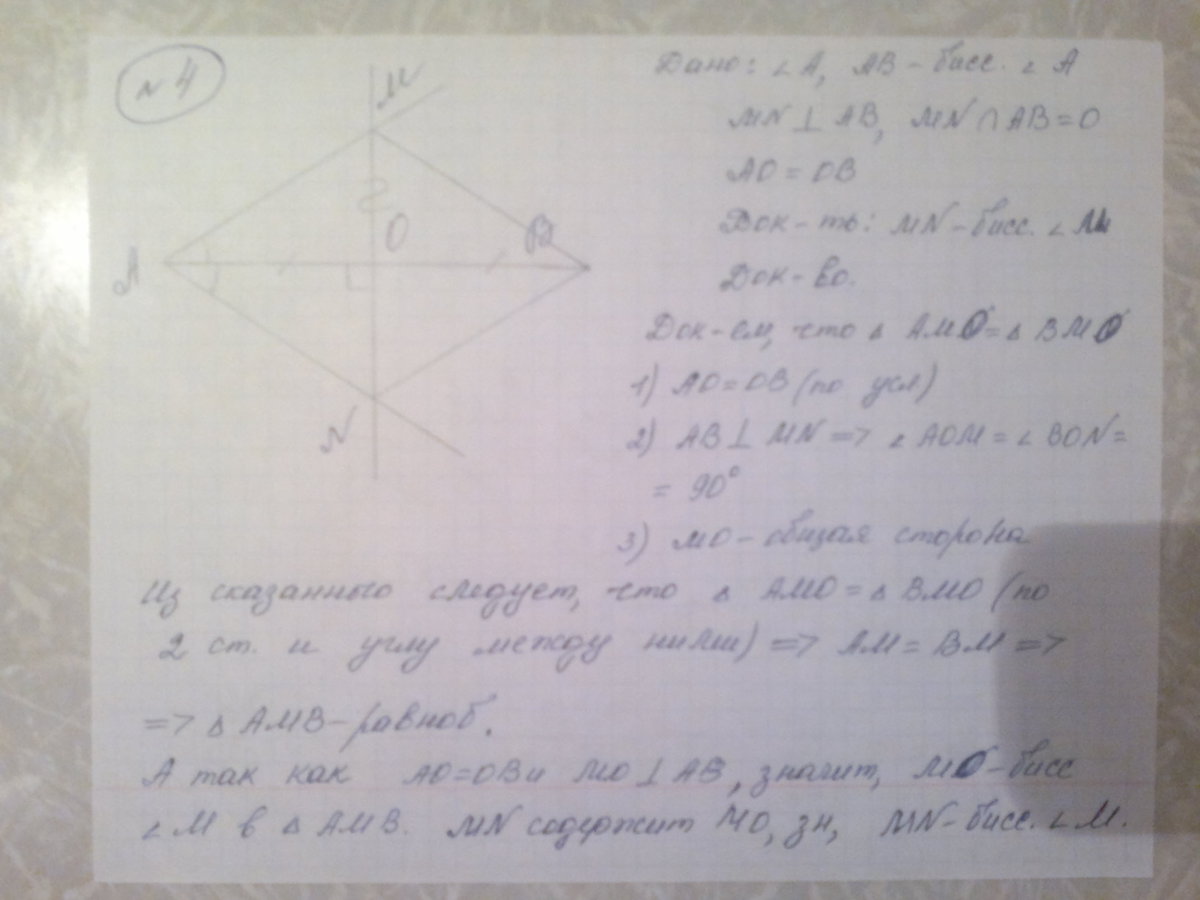 №4
Дано: ∠A, AB - бисс. ∠A
MN ⊥ AB, MN ∩ AB = O
AO = OB
Док-ть: MN - бисс. ∠M
Док-во.
Док-ем, что △ AMO = △ BMO
1) AO = OB (по усл)
2) AB ⊥ MN => ∠ AOM = ∠ BON =
= 90°
3) MO - общая сторона
Из сказанного следует, что △ AMO = △ BMO (по
2 ст. и углу между ними) => AM = BM =>
=> △ AMB - равноб.
А так как AO = OB и MO ⊥ AB, значит, MO - бисс
∠M в △ AMB. MN содержит MO, зн, MN - бисс. ∠M.
M
O
B
A
N